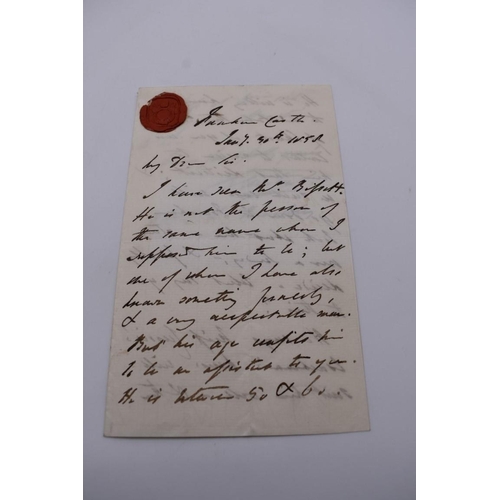 Farnham Castle.
Jany. 30th. 1858
My Dear Sir.
I have seen Mr.
He is not the person of
the same name whom I
supposed him to be; but
one of whom I have also
known something formerly,
& a very respectable man.
But his age unfits him
to be an assistant to you.
He is between 50 & 60.